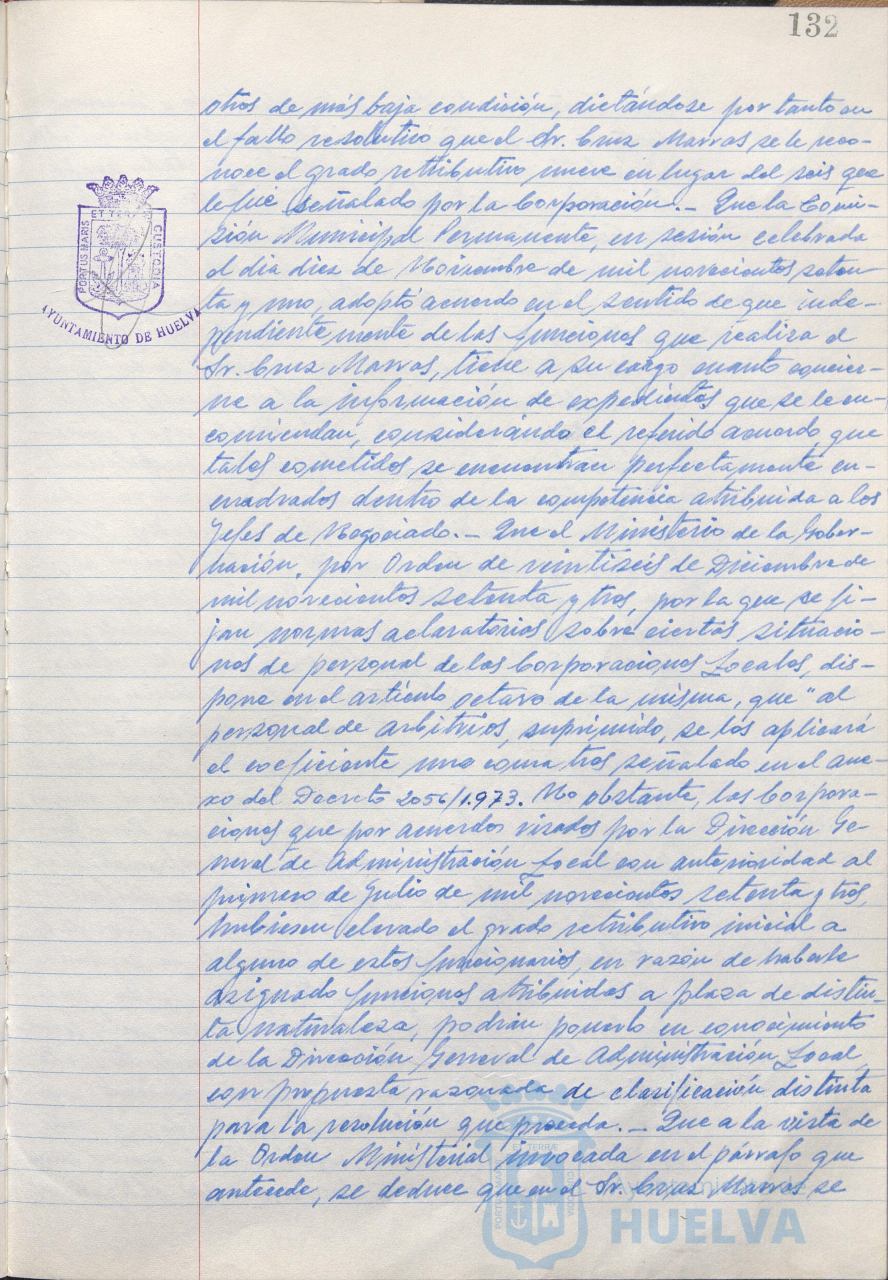 132
otros de más baja condición, dictándose por tanto en
el fallo resolutivo que el Sr. Cruz Marras se le reco-
noce el grado retributivo nueve en lugar del seis que
le fué señalado por la Corporación.- Que la Comi-
sión Municipal Permanente, en sesión celebrada
el dia diez de Noviembre de mil novecientos seten-
ta y uno, adoptó acuerdo en el sentido de que inde-
pendientemente de las funciones que realiza el
Sr. Cruz Marras, tiene a su cargo cuanto concier-
ne a la información de expedientes que se le en-
comiendan, considerando el referido acuerdo que
tales cometidos se encuentran perfectamente en-
cuadrados dentro de la competencia atribuida a los
Jefes de Negociado.- Que el Ministerio de la Gober-
nación, por Orden de veintiseis de Diciembre de
mil novecientos setenta y tres, por la que se fi-
jan normas aclaratorias sobre ciertas situacio-
nes de personal de las Corporaciones Locales, dis-
pone en el artículo octavo de la misma, que "al
personal de arbitrios, suprimido, se les aplicará
el coeficiente uno coma tres señalado en el ane-
xo del Decreto 2056/1.973. No obstante, las Corpora-
ciones que por acuerdos visados por la Dirección Ge-
neral de Administración Local con anterioridad al
primero de Julio de mil novecientos setenta y tres,
hubiesen elevado el grado retributivo inicial a
alguno de estos funcionarios, en razón de haberle
asignado funciones atribuidas a plaza de distin-
ta naturaleza, podrán ponerlo en conocimiento
de la Dirección General de Administración Local,
con propuesta razonada de clasificación distinta
para la resolución que proceda.- Que a la vista de
la Orden Ministerial invocada en el párrafo que
antecede, se deduce que en el Sr. Cruz Marras se
PORTUS MARIS
ET TERRÆ
CUSTODIA
AYUNTAMIENTO DE HUELVA
HUELVA